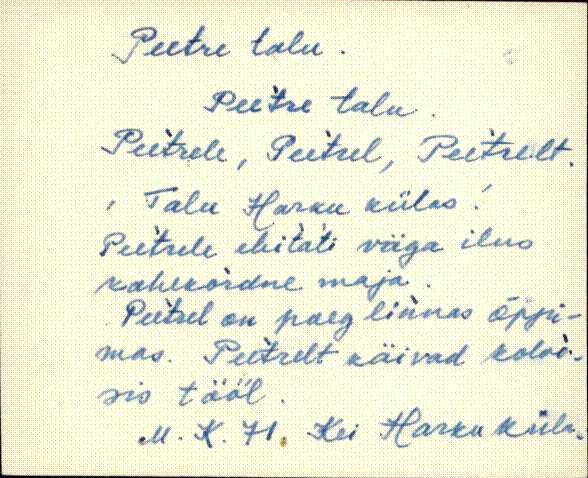 Peetre talu.
Pee̬tre talu.
Peetrele, Peetrel, Peetrelt.
, Talu Harku külas!
Peetrele ehitati väga ilus
kahekordne maja.
Peetrel on praeg linnas õppi-
mas. Peetrelt käivad koloo-
sis tööl.
M. K. 71. Kei Harku küla.